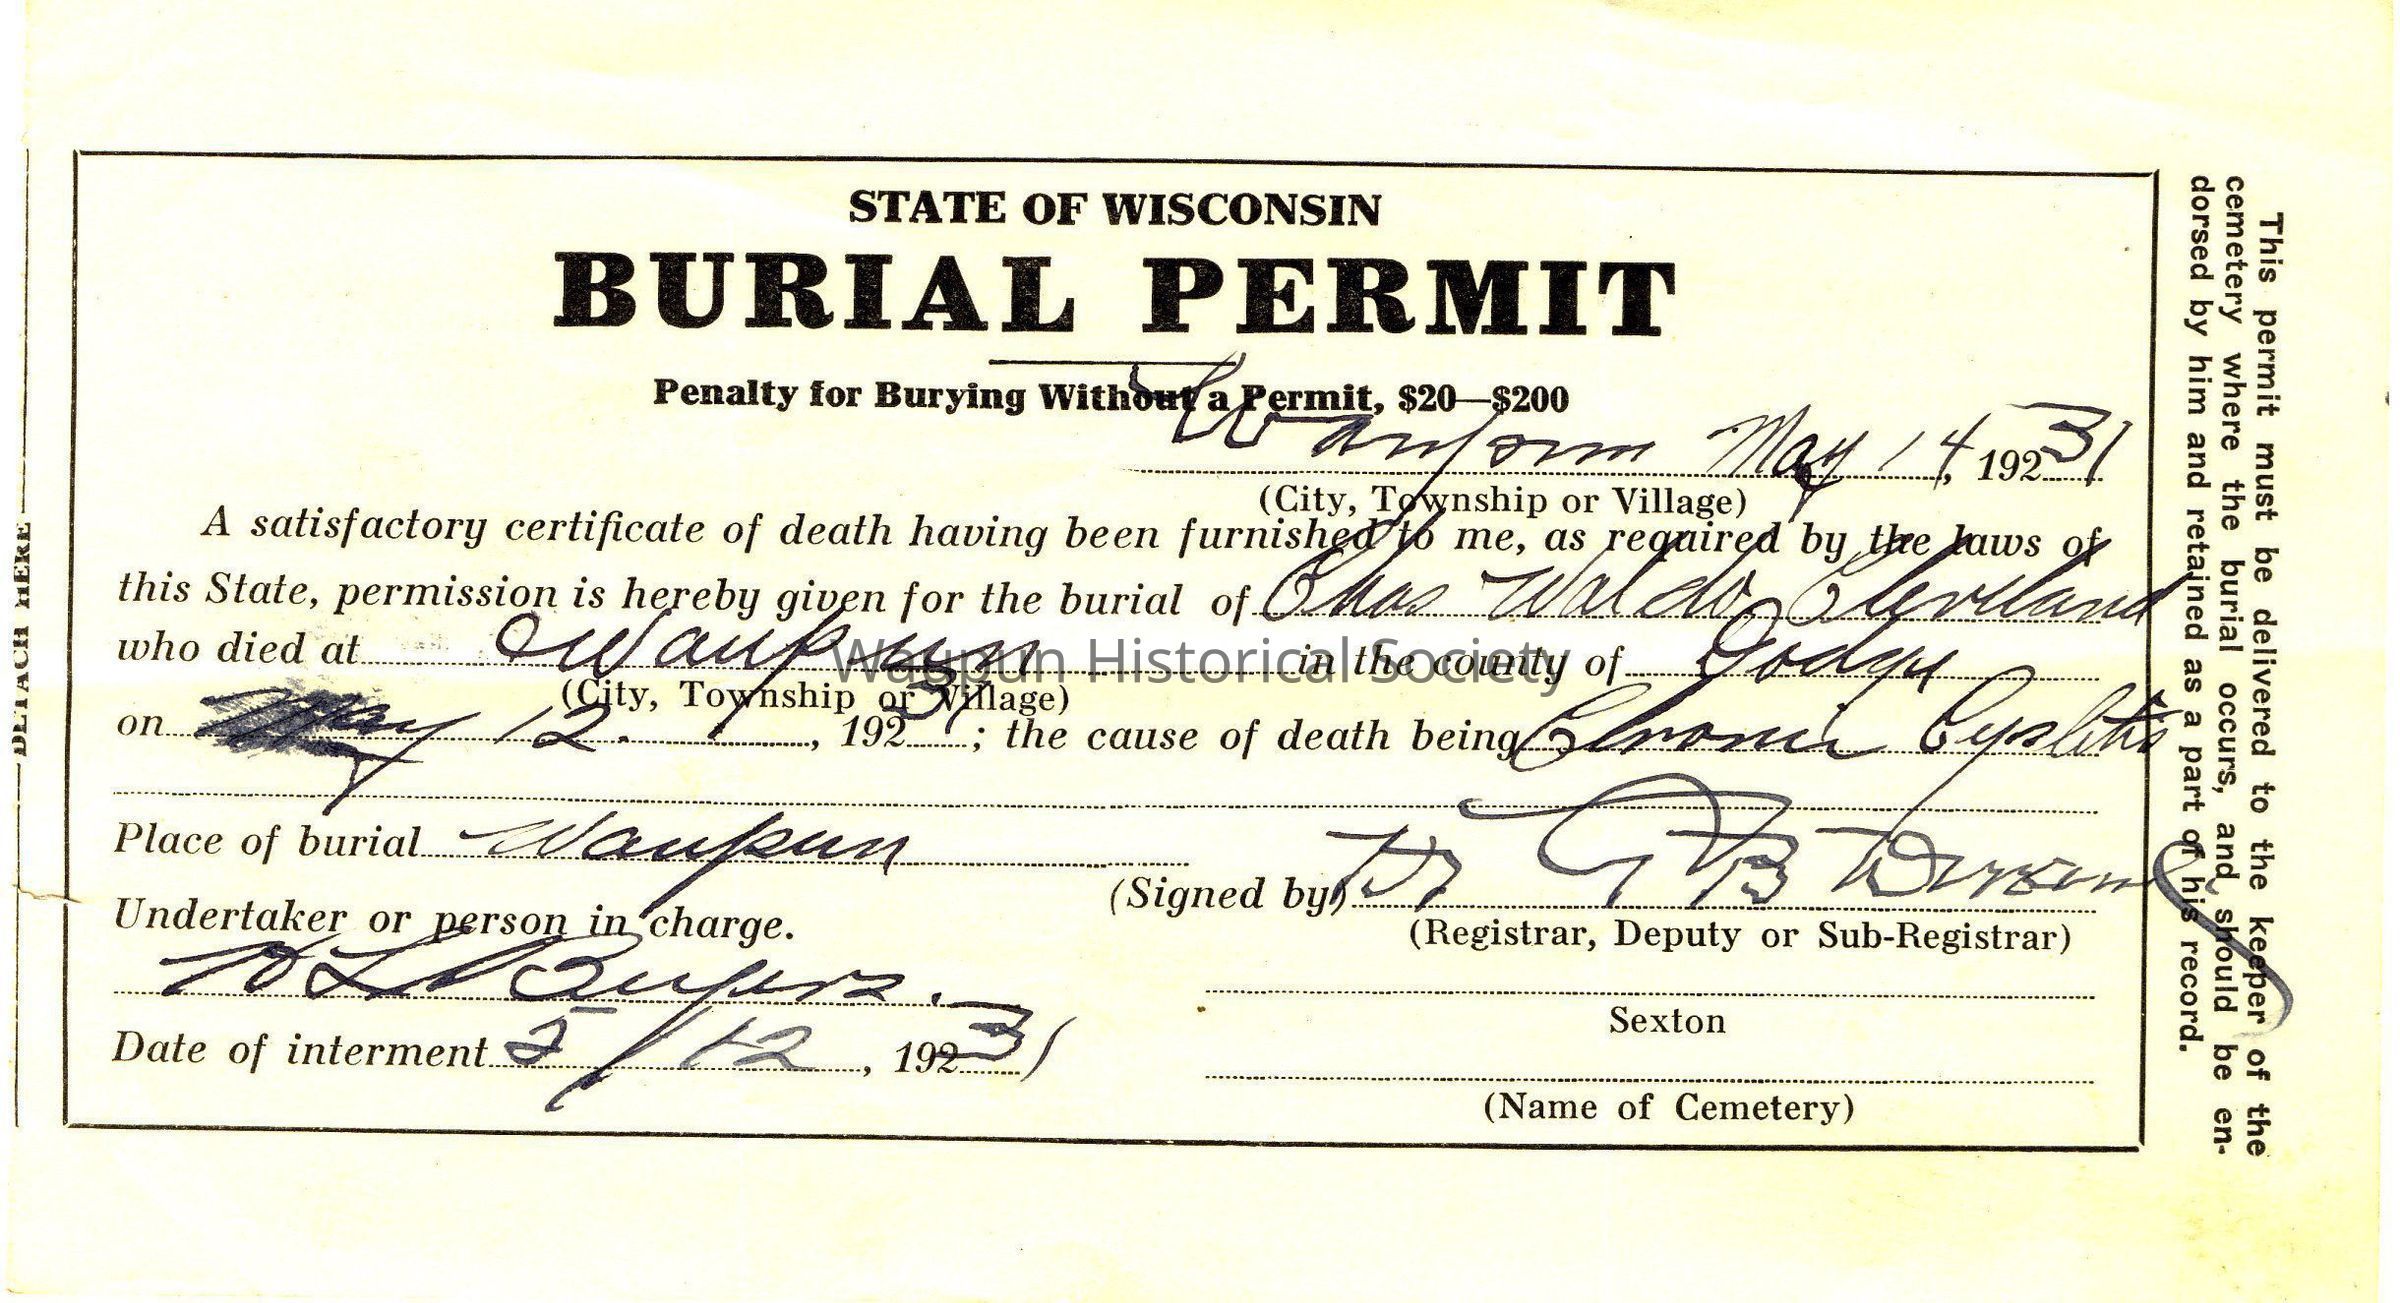 STATE OF WISCONSIN
BURIAL PERMIT
Penalty for Burying Without a Permit, $20—$200
Waupun May 14, 1931
(City, Township or Village)
A satisfactory certificate of death having been furnished to me, as required by the laws of
this State, permission is hereby given for the burial of Chas Waldo Cleveland
who died at Waupun in the county of Dodge
(City, Township or Village)
on May 12. , 1931; the cause of death being Chronic Cystitis
Place of burial Waupun
(Signed by)
Undertaker or person in charge.
(Registrar, Deputy or Sub-Registrar)
Sexton
Date of interment 5/12, 1931
(Name of Cemetery)
This permit must be delivered to the keeper of the
cemetery where the burial occurs, and should be en-
dorsed by him and retained as a part of his record.
DETACH HERE
Waupun Historical Society